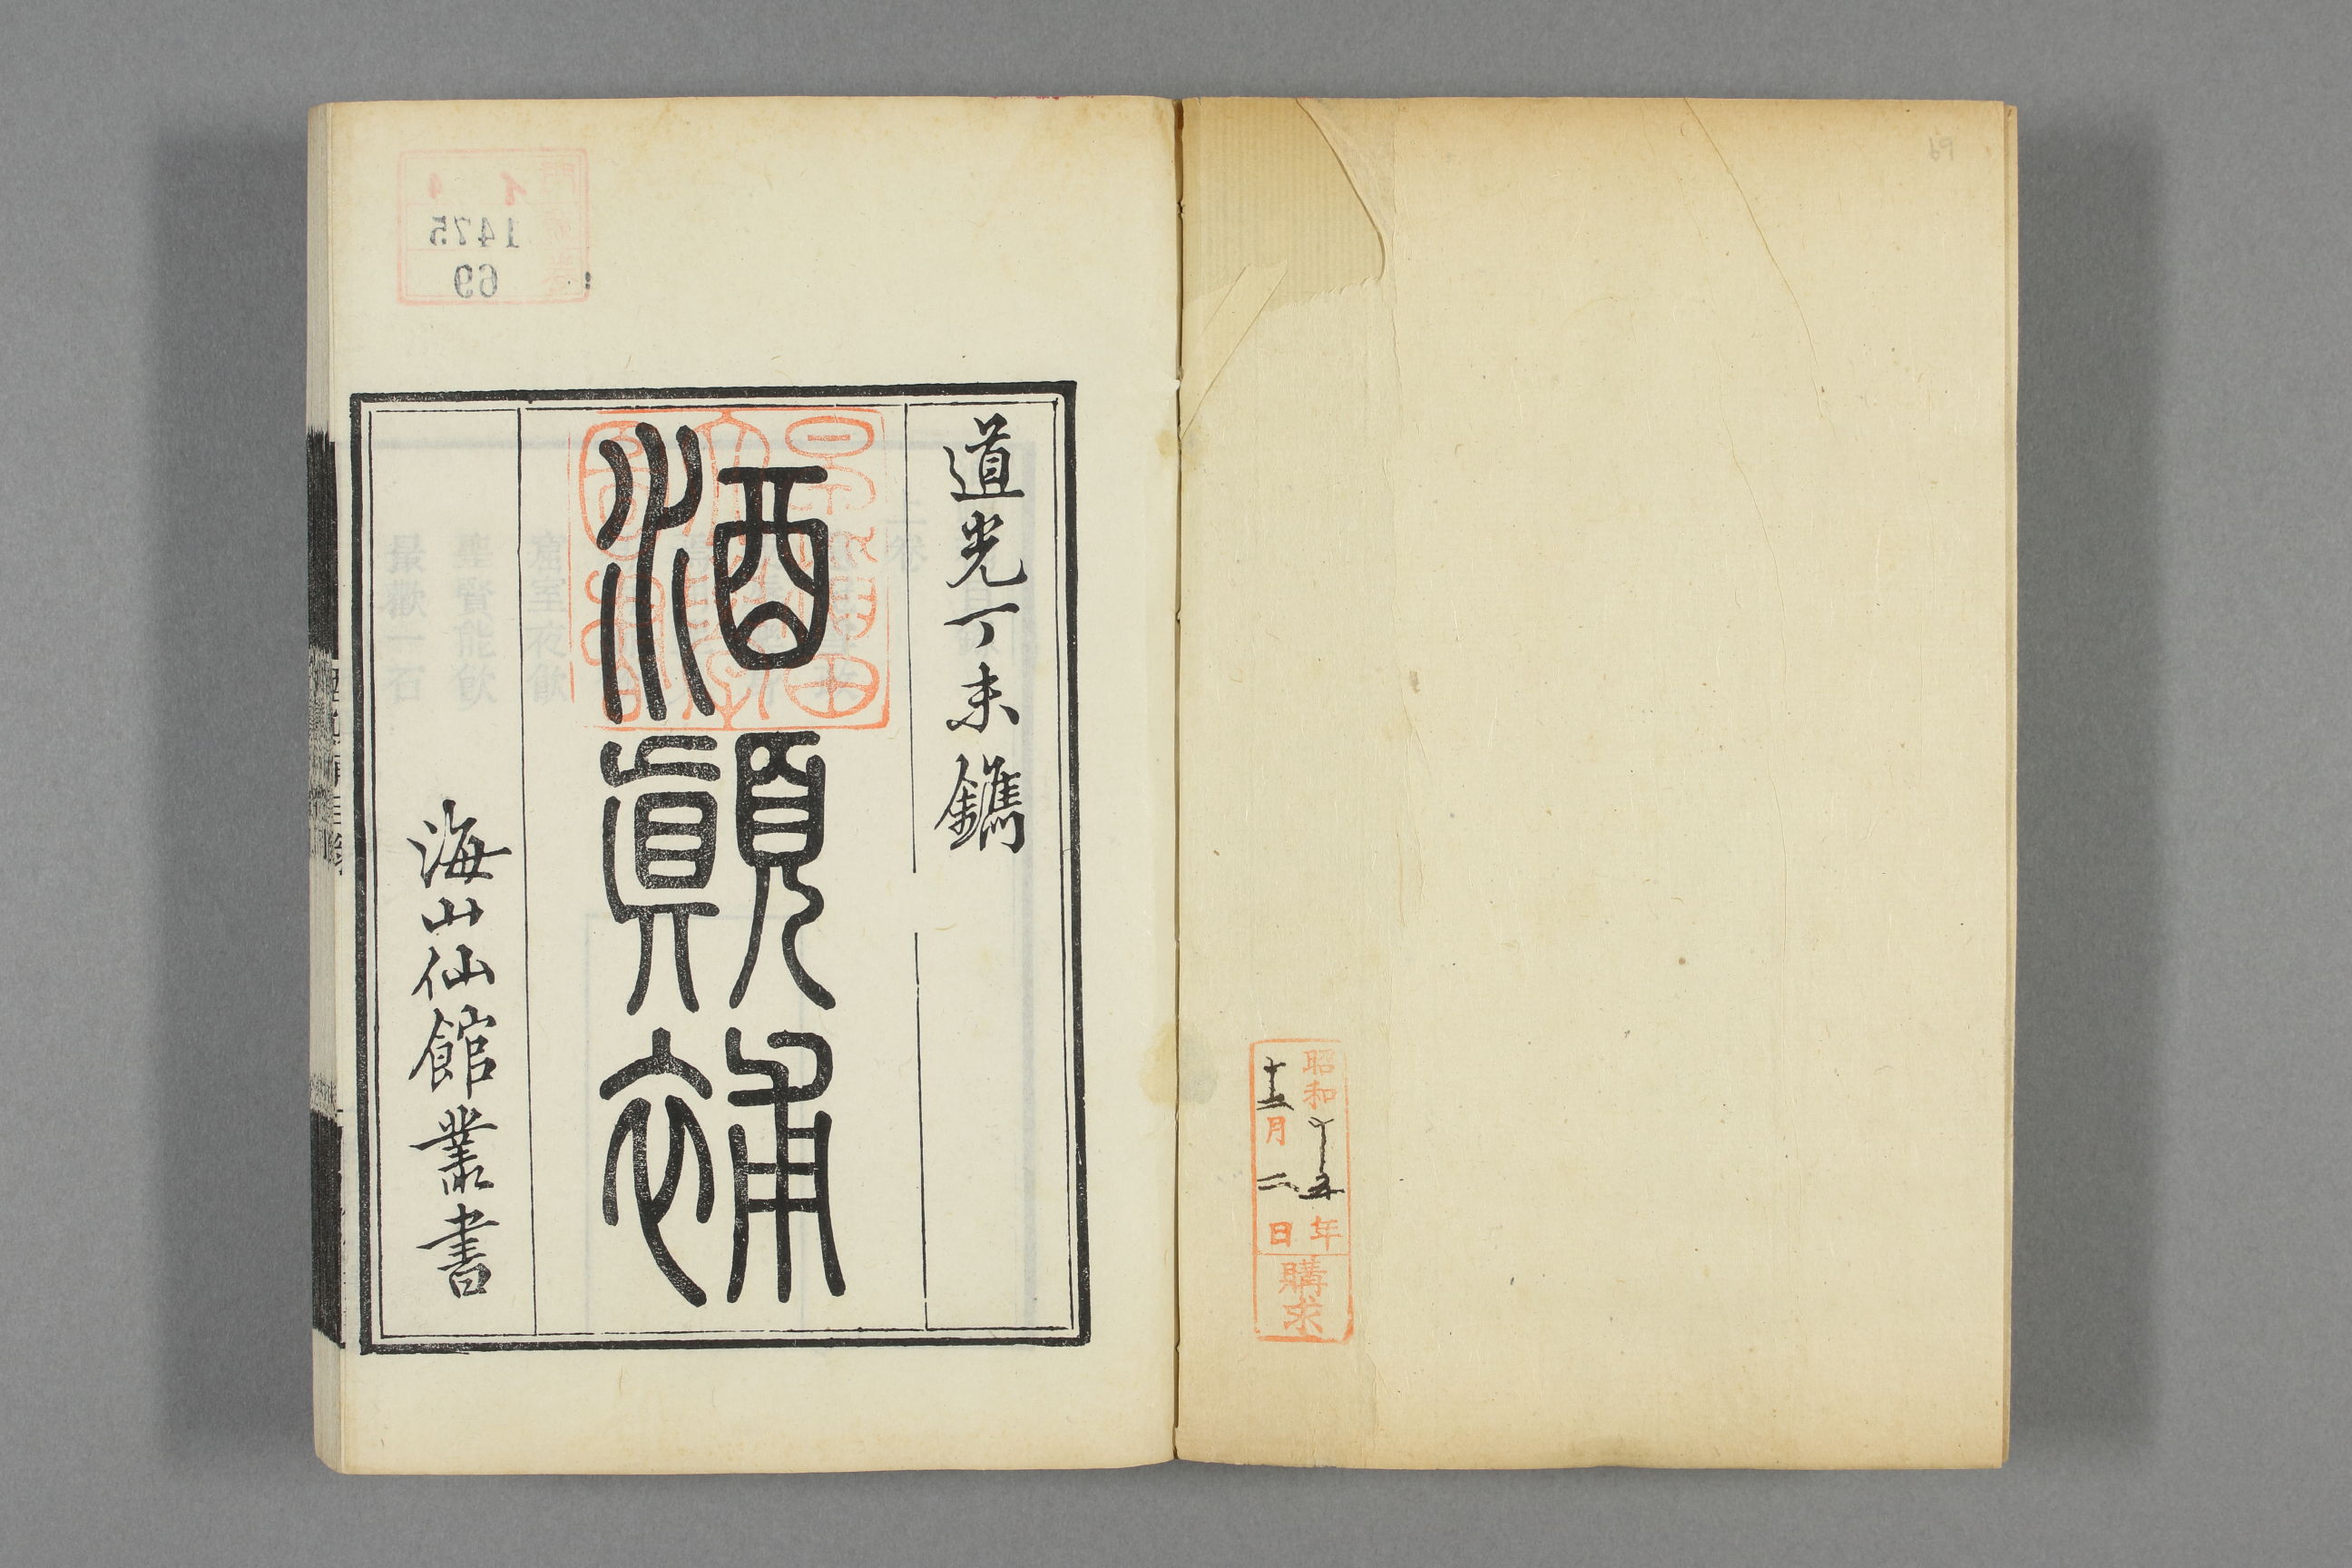 69
昭和十五年
十二月二日
購求
道光丁未鐫
酒顛補
海山仙館叢書
1475
69